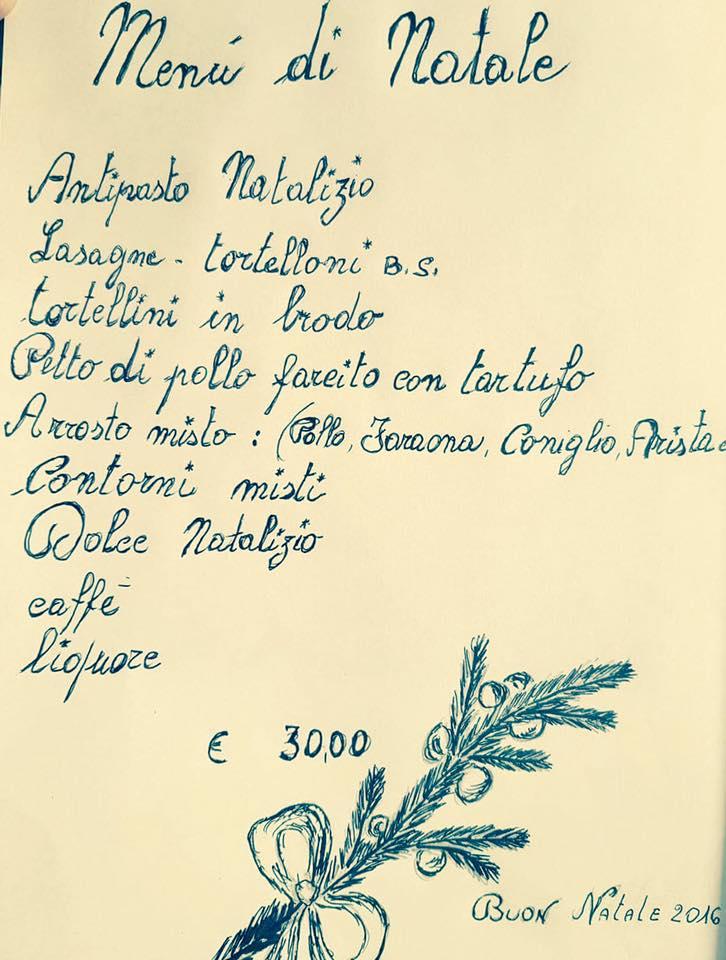 Menú di Natale
Antipasto Natalizio
Lasagne - tortelloni B.S.
tortellini in brodo
Petto di pollo farcito con tartufo
Arrosto misto : (Pollo, Faraona, Coniglio, Arista
Contorni misti
Dolce Natalizio
caffè
liquore
€ 30,00
Buon Natale 2016